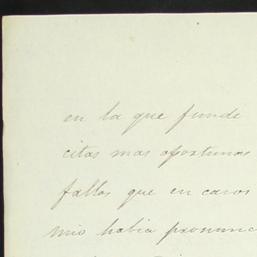 en la que funde
citas mas oportunas
fallos que en casos
mio habia pronunc